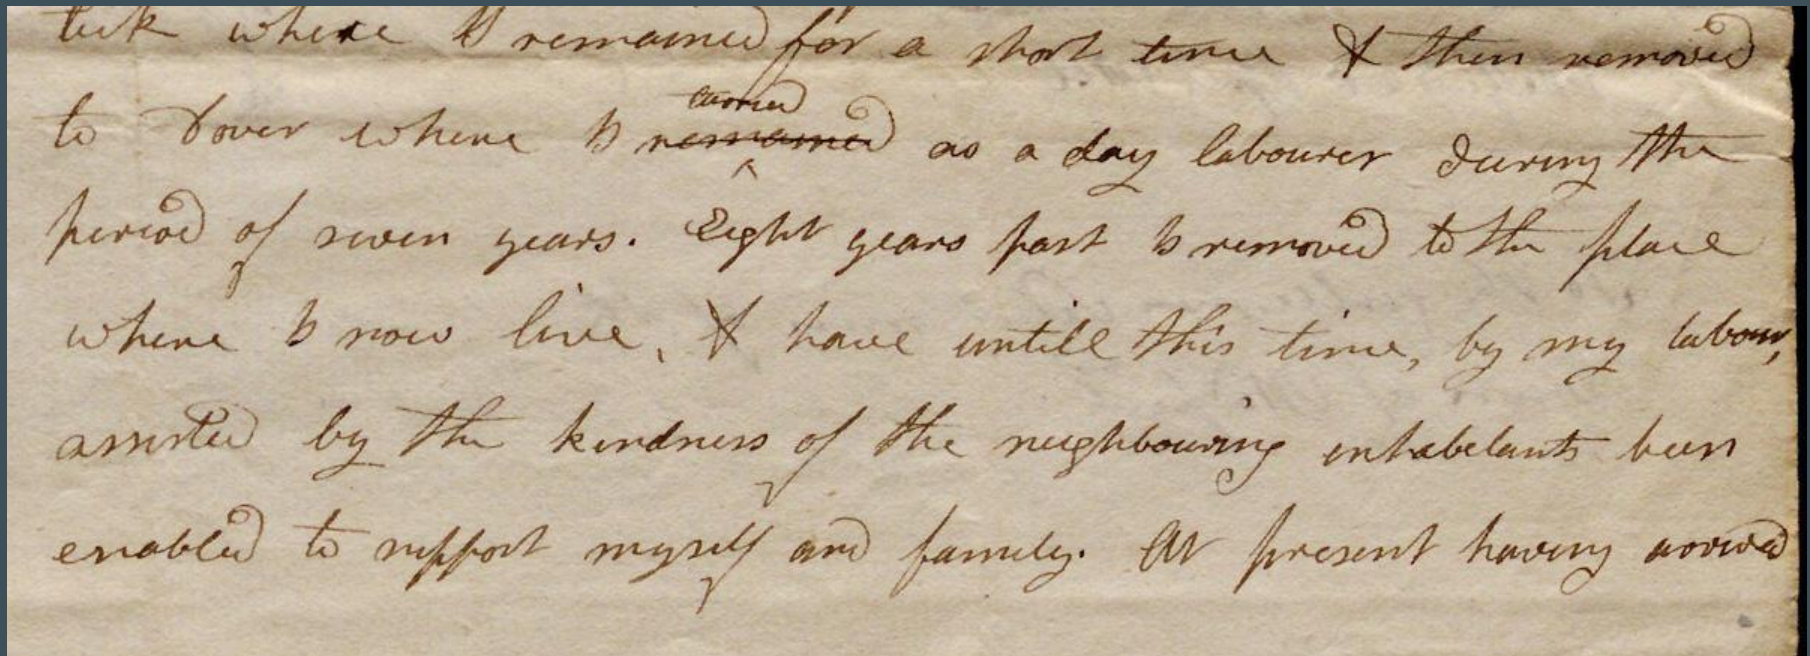 where I remained for a short time & then removed
to Dover where I remained tarried as a day labourer during the
period of seven years. Eight years past I removed to the place
where I now live, & have untill this time, by my labour,
assisted by the kindness of the neighbouring inhabitants been
enabled to support myself and family. At present having arrived